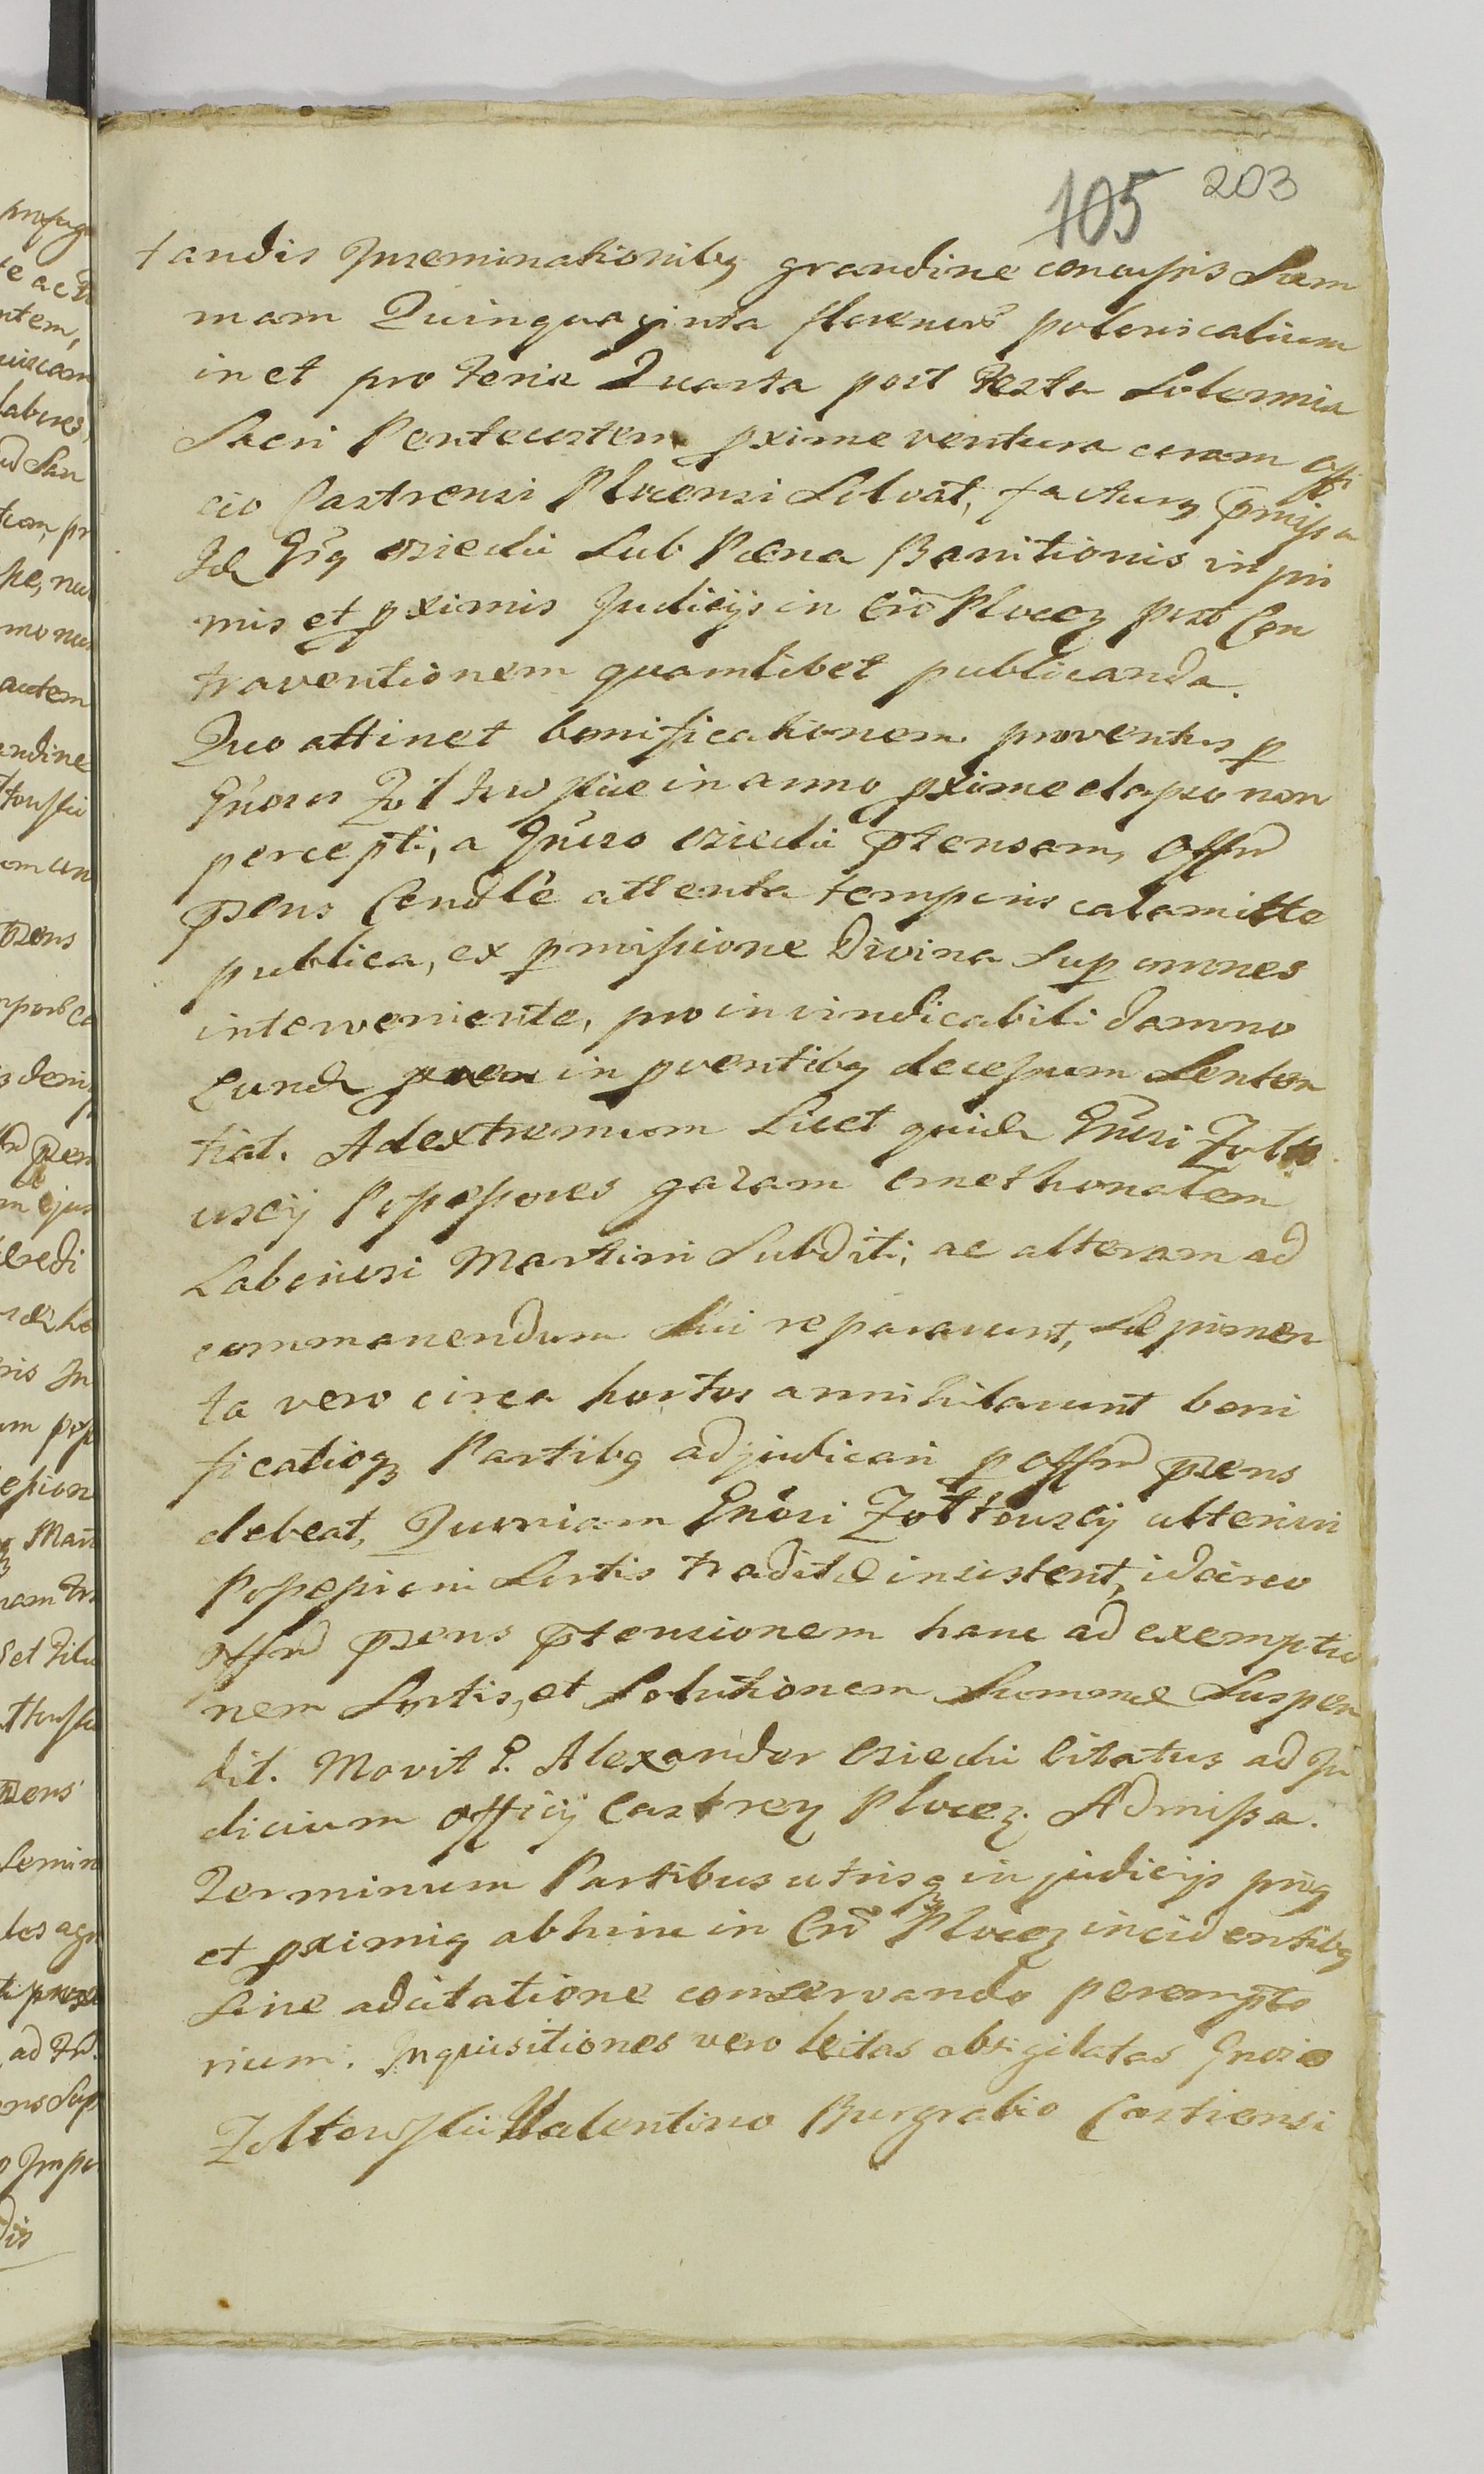 105 203
tandis Inseminationibq grandine concussis Sum
mam Quinquaginta florenorū polonicalium
in et pro Feria Quarta post Festa Solennia
Sacri Pentecosten pxime ventura coram Offi
cio Castrensi Plocensi Solvat, facturq pmissa
Id Gnsq Osiecki Sub Pœna Banitionis in pri
mis et pximis Judicijs in Crō Plocen post Con
traventionem quamlibet publicanda.
Quo attinet bonificationem proventus p
Gnosos Zołtowskie in anno pxime elapso non
percepti, a Gnoso Osiecki ptensam, Offm
psens Cendlē attenta temporis calamitte
publica, ex pmissione Divina Sup omnes
interveniente, pro invindicabili damno
Eund in pventibq decessum Senten
tiat. Adextremum Licet quidē Gnosi Zołto
uscij Possessores gazam cmethonalem
Laboriosi Martini Subditi, ac alteram ad
commanendum Sui repararunt, Sepimen
ta vero circa hortos annihilarunt boni
ficatioqȝ Partibq adjudicari p Offm psens
debeat, Quoniam Gnosi Zołtowscij ulteriori
Possessioni Sortis traditæ insistent, idcirco
Offm psens ptensionem hanc ad exemptio
nem Sortis, et Solutionem Summæ Suspen
dit. Movit G. Alexander Osiecki Citatus ad Ju
dicium Officij Castren Plocen. Admissa.
Terminum Partibus utrisqȝ in judicijs primq
et pximiq abhinc in Crō Plocen incidentibq
Sine adcitatione conservando perempto
rium. Inquisitiones vero Scitas obsigilatas Gnoso
Zołtowski Valentino Burgrabio Castrensi